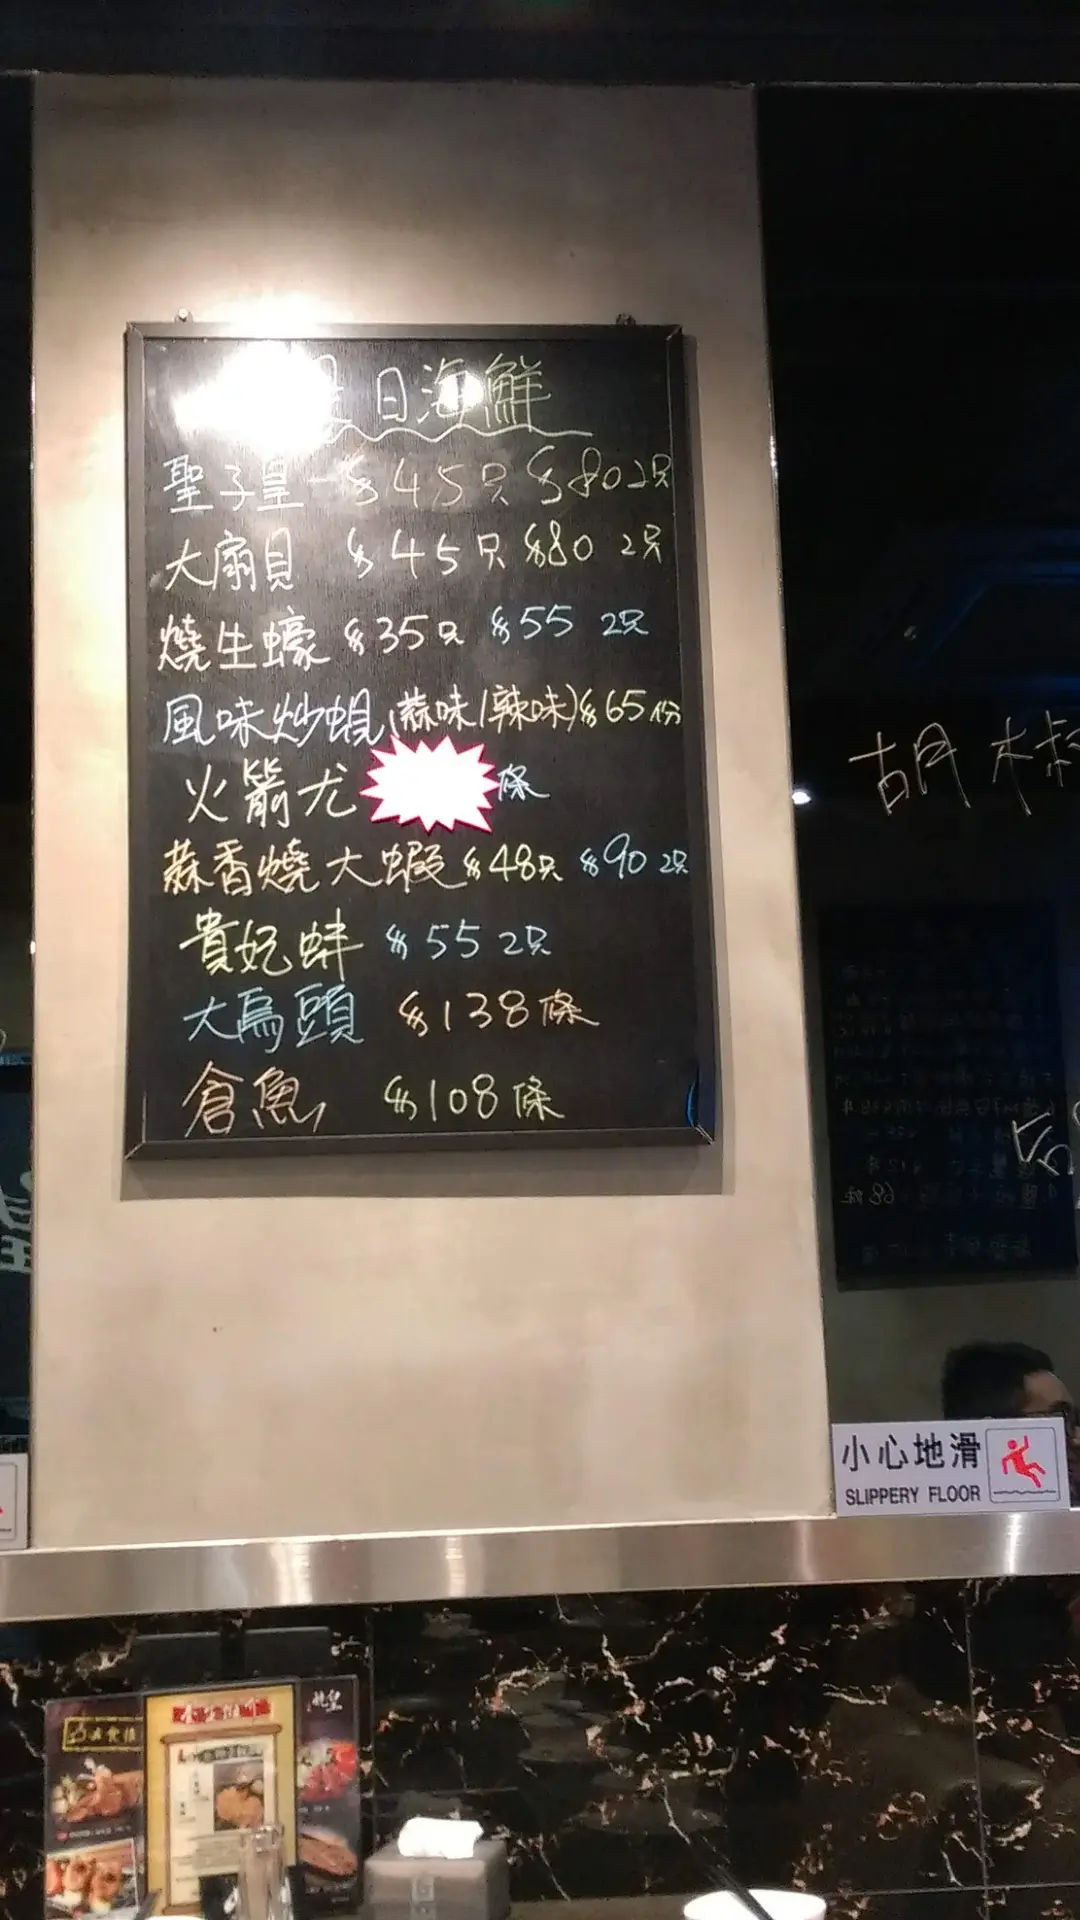 是日海鮮
聖子皇 $45只 $80 2只
大扇貝 $45只 $80 2只
燒生蠔 $35只 $55 2只
風味炒蜆(蒜味/辣味)$65份
火箭尤 條
蒜香燒大蝦 $48只 $90 2只
貴妃蚌 $55 2只
大烏頭 $138條
倉魚 $108條
胡椒
小心地滑
SLIPPERY FLOOR